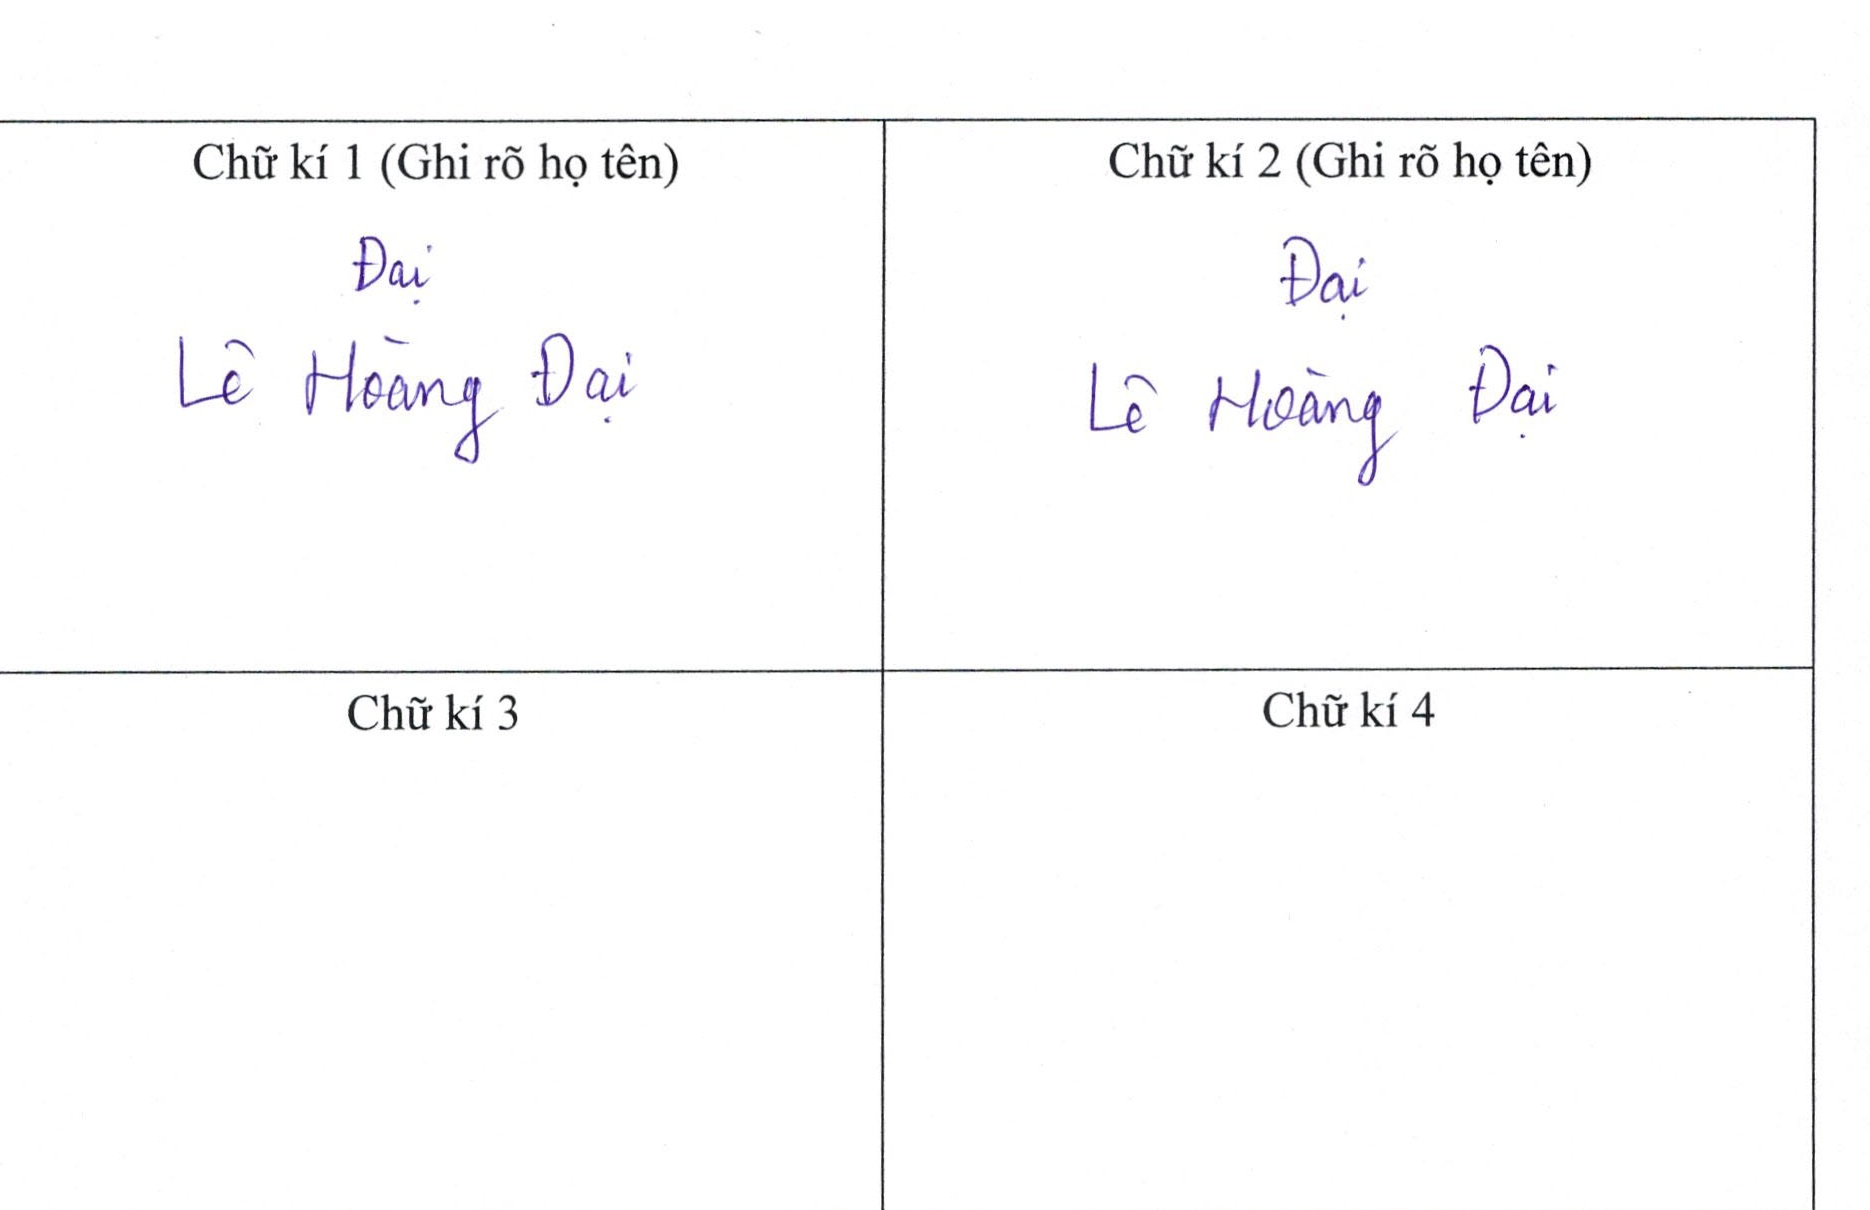 Chữ kí 1 (Ghi rõ họ tên)
Đại
Lê Hoàng Đại
Chữ kí 2 (Ghi rõ họ tên)
Đại
Lê Hoàng Đại
Chữ kí 3
Chữ kí 4